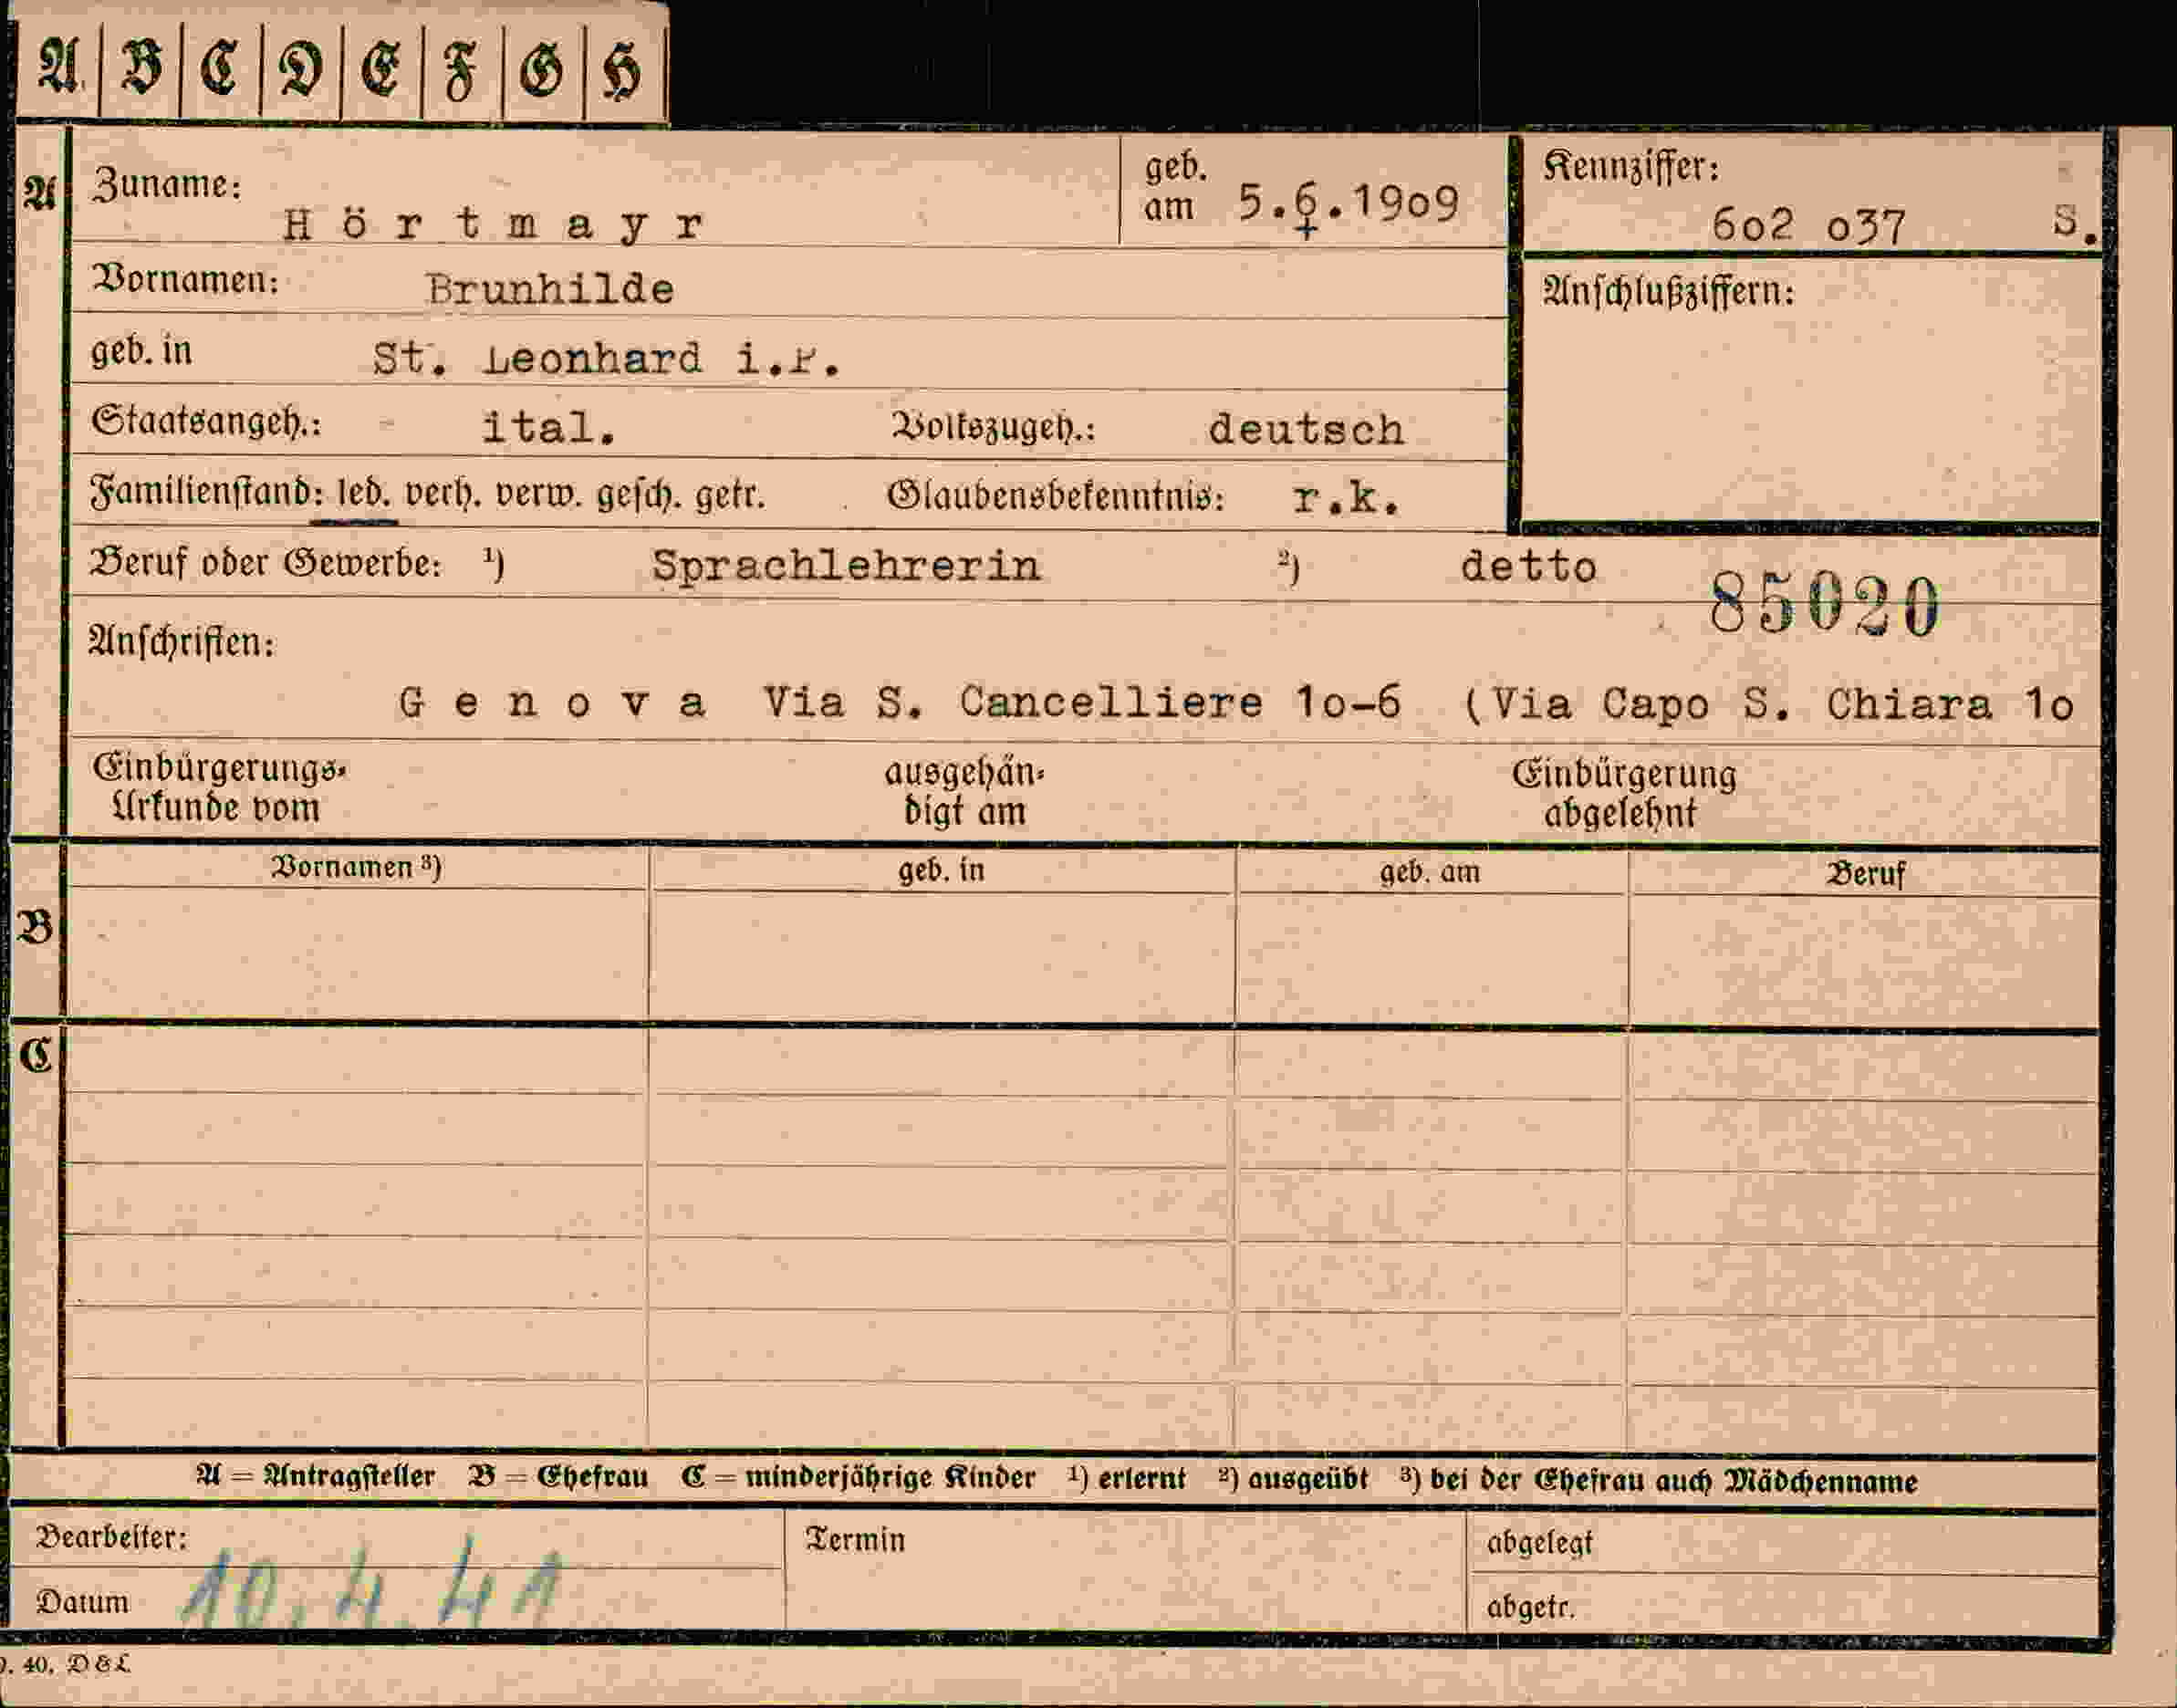 A B C D E F G H
A Zuname: Hörtmayr geb. am 5.6.1909 Kennziffer: 6o2 o37 S.
Vornamen: Brunhilde Anschlußziffern:
geb. in St. Leonhard i.P.
Staatsangeh.: ital. Volkszugeh.: deutsch
Familienstand: led. verh. verw. gesch. getr. Glaubensbekenntnis: r.k.
Beruf oder Gewerbe: ¹) Sprachlehrerin ²) detto
85020
Anschriften:
Genova Via S. Cancelliere 1o-6 (Via Capo S. Chiara 1o
Einbürgerungs- ausgehän- Einbürgerung
Urkunde vom digt am abgelehnt
Vornamen ³) geb. in geb. am Beruf
B
C
A = Antragsteller B = Ehefrau C = minderjährige Kinder ¹) erlernt ²) ausgeübt ³) bei der Ehefrau auch Mädchenname
Bearbeiter: Termin abgelegt
Datum 10.4.41 abgetr.
40. D&L